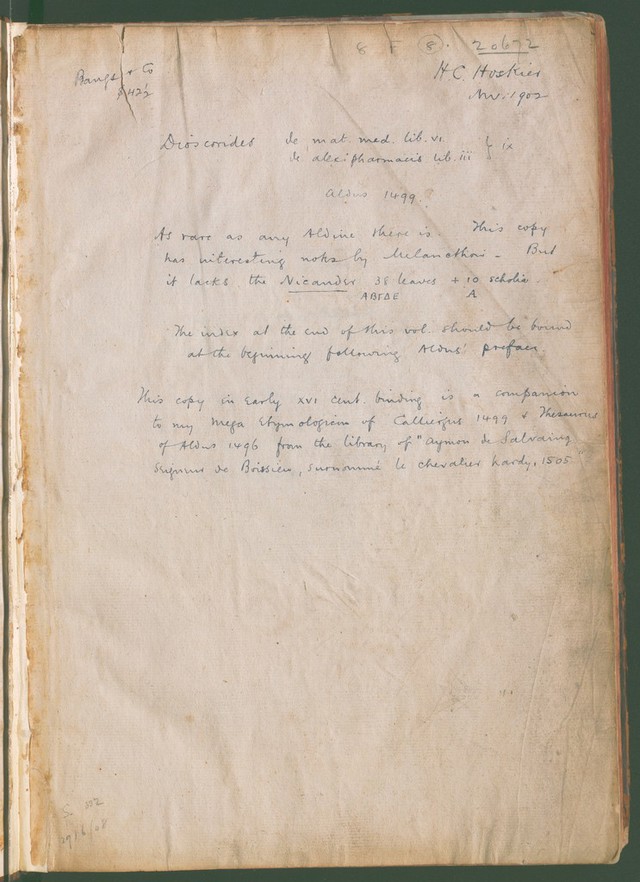 8 F 8. 20672
Bangs & Co
$42½
H.C. Hoskier
Nov. 1902
Dioscorides de mat. med. lib. vi. } ix
de alexipharmacis lib. iii
Aldus 1499
As rare as any Aldine there is. This copy
has interesting notes by Melancthon - But
it lacks the Nicander 38 leaves + 10 scholia.
ΑΒΓΔΕ A
The index at the end of this vol. should be bound
at the beginning following Aldus' preface.
This copy in early XVI cent. binding is a companion
to my Mega Etymologicum of Calliergus 1499 & Thesaurus
of Aldus 1496 from the library of "Aymon de Salvaing
Seigneur de Boissieu, surnommé le chevalier hardy, 1505"